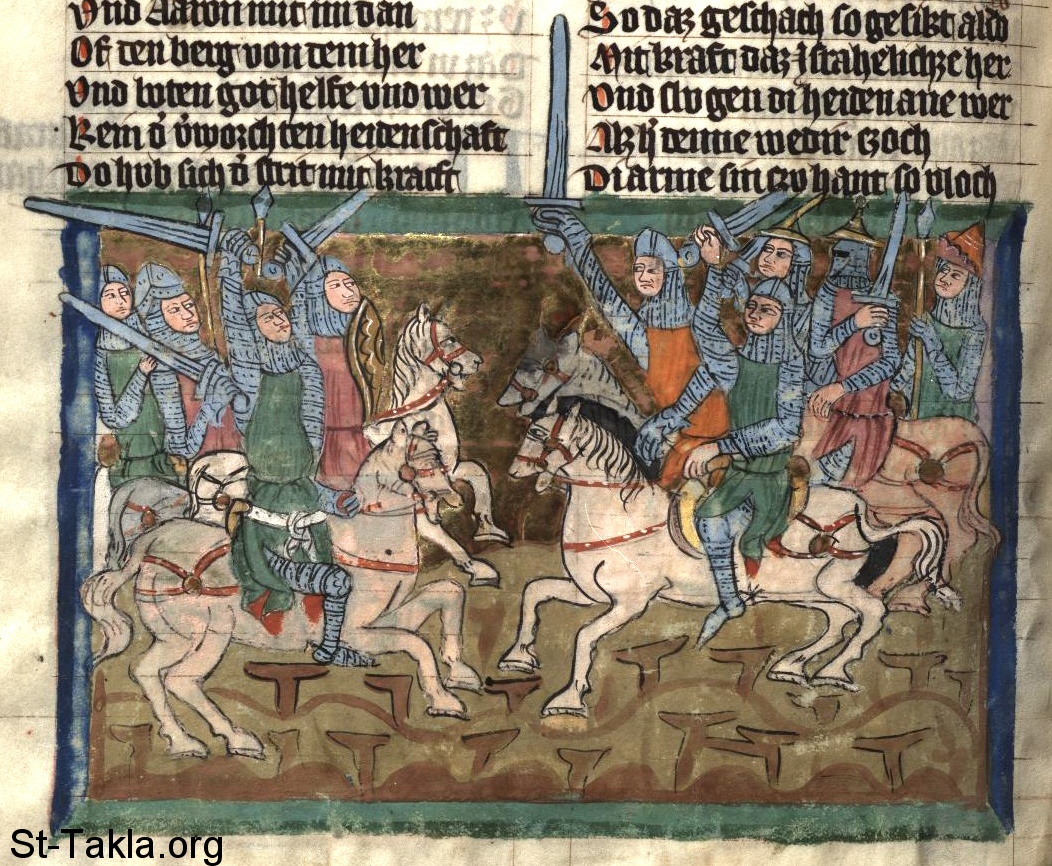 Vnd Aaron mit im dan
Vf den berg von dem her
Vnd boten got helfe vnd wer
Kein d' v'worchten heidenschaft
Do hvb sich d' strit mit kraft
So daz geschach so gesikt ald
Mit kraft daz Israhelische her
Vnd slvgen di heiden ane wer
di arme sin czv hant so vloch
St-Takla.org